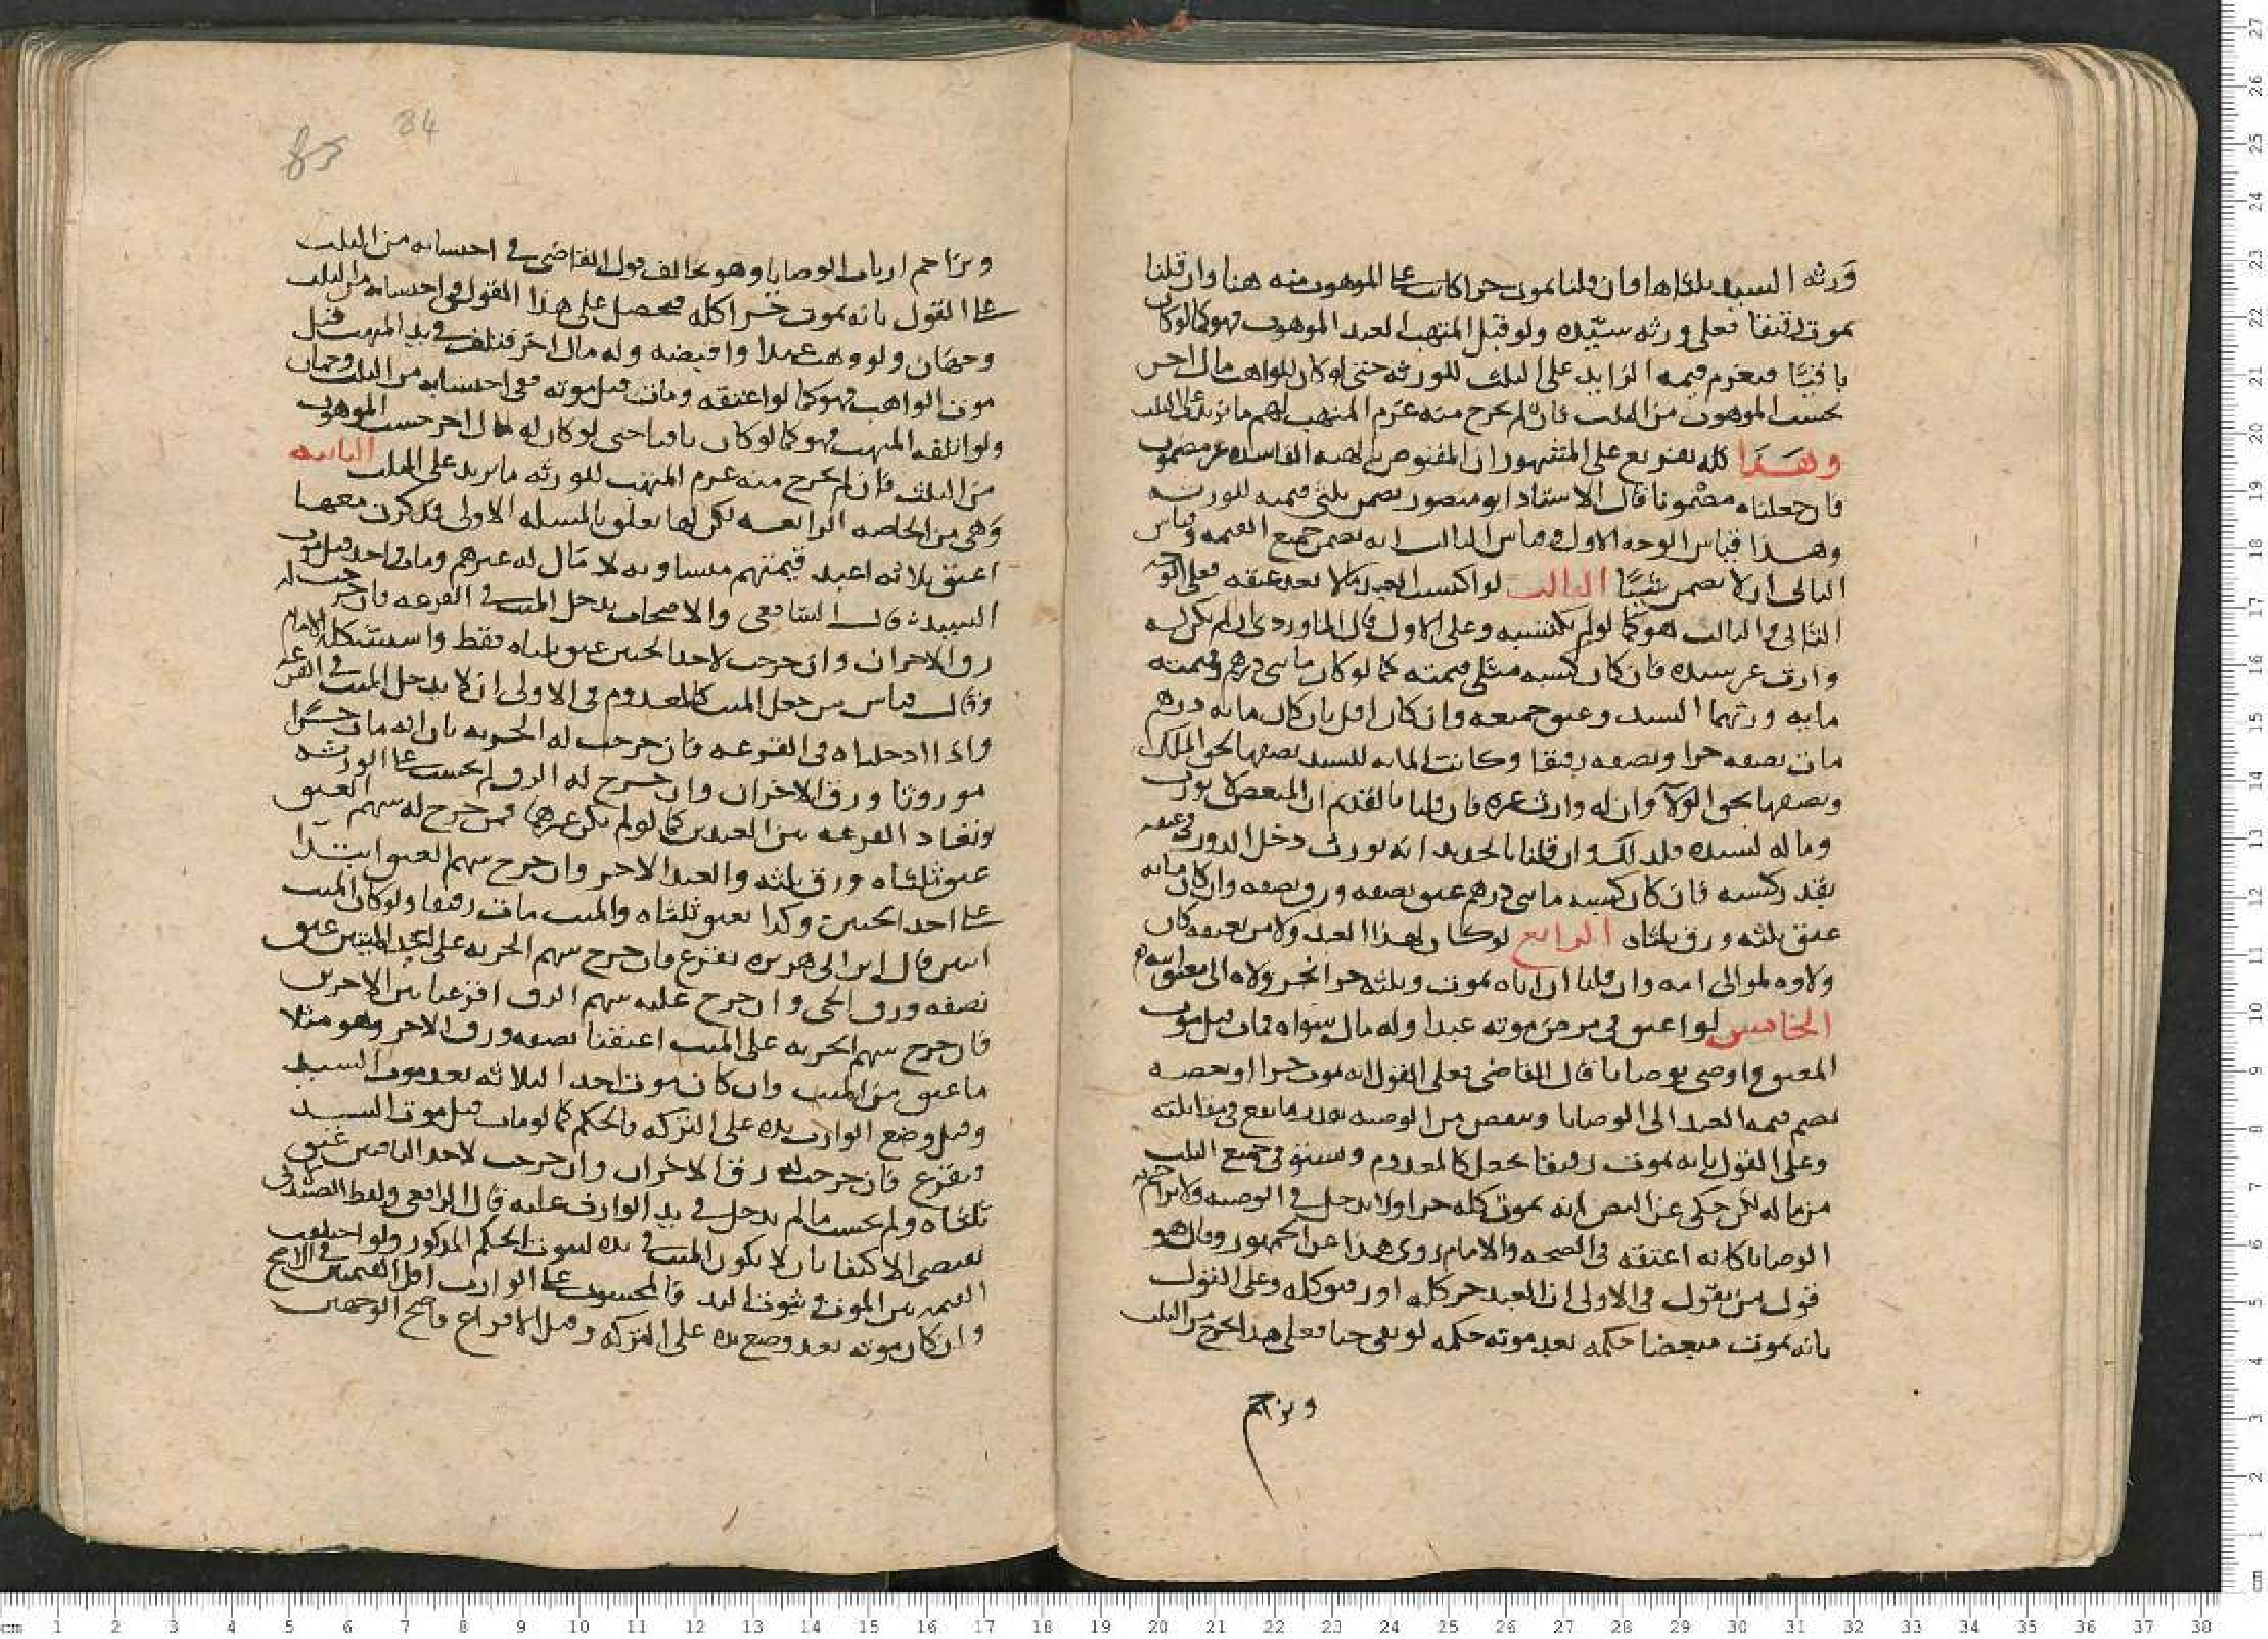 ورثة السيد ثلثاها وان قلنا يموت حرا كانت على الموهوب منه هنا وان قلنا
يموت رقيقا فعلى ورثة سيده ولو قبل المتهب العبد الموهوب فهو كما لو كان
باقيا فيغرم قيمة الزايد على الثلث للورثة حتى لو كان للواهب مال اخر
يحسب الموهوب من الثلث فان لم يخرج منه غرم المتهب لهم ما يزيد على الثلث
وهذا كله تفريع على المشهور ان المقبوض بالهبة الفاسدة غير مضمون
فان جعلناه مضمونا قال الاستاد ابو منصور يضمن ثلثي قيمته للورثة
وهذا قياس الوجه الاول وقياس الثالث انه يضمن جميع القيمة وقياس
الثاني ان لا يضمن شيئا الثالث لو اكتسب العبد مالا بعد عتقه فعلى الوجه
الثاني والثالث هو كما لو لم يكتسبه وعلى الاول قال الماوردي ان لم يكن له
وارث غير سيده فان كان كسبه مثلي قيمته كما لو كان مايتي درهم وقيمته
مايه ورثهما السيد وعتق جميعه وان كان اقل بان كان مايه درهم
مات نصفه حرا ونصفه رقيقا وكانت المايه للسيد نصفها بحق الملك
ونصفها بحق الولآ وان له وارث غيره فان قلنا بالقديم ان المبعض لا يورث
وماله لسيده فلذلك وان قلنا بالجديد انه يورث دخل الدور في عتقه
بقدر كسبه فان كان كسبه مايتي درهم عتق نصفه ورق نصفه وان كان مايه
عتق ثلثه ورق ثلثاه الرابع لو كان لهذا العبد ولا من بعتقه كان
ولاوه لموالي امه وان قلنا ان اباه يموت وثلثه حر انجر ولاه الى معتق ابيه
الخامس لو اعتق في مرض موته عبدا وله مال سواه فمات قبل موت
المعتق واوصى بوصايا قال القاضي فعلى القول انه يموت حرا او بعضه
يضم قيمة العبد الى الوصايا وينقص من الوصية بقدر ما يقع في مقابلته
وعلى القول بانه يموت رقيقا يجعل كالمعدوم وسنق في جميع الثلث
من ماله لكن حكى عن النص انه يموت كله حرا ولا يدخل في الوصية ولا يزاحم به
الوصايا كانه اعتقه في الصحة والامام روى هذا عن الجمهور وقال هو
قول من يقول في الاولى ان العبد حر كله او رقيق كله وعلى القول
بانه يموت مبعضا حكمه بعد موته حكمه لو بقي حيا فعلى هذا يخرج من الثلث
ويزاحم
84
85
ويزاحم ارباب الوصايا وهو يخالف قول القاضي في احتسابه من الثلث
على القول بانه يموت حرا كله فيحصل على هذا القول في احتسابه من الثلث
وجهان ولو وهب عبدا واقبضه وله مال اخر فتلف في يد المتهب قبل
موت الواهب فهو كما لو اعتقه ومات قبل موته ففي احتسابه من الثلث وجهان
ولو اتلفه المتهب فهو كما لو كان باقيا حتى لو كان له مال اخر حسب الموهوب
من الثلث فان لم يخرج منه غرم المتهب للورثة ما يزيد على الثلث الثانية
وهي من الخاصه الرابعه لكن لها تعلق بالمسله الاولى فذكرت معها
اعتق ثلاثة اعبد قيمتهم متساوية لا مال له غيرهم ومات واحد قبل موت
السيد قال الشافعي والاصحاب يدخل الميت في القرعه فان خرجت له
رق الاخران وان خرجت لاحد الحيين عتق ثلثاه فقط واستشكله الامام
وقال قياس من جعل الميت كالمعدوم في الاولى ان لا يدخل الميت في القرعه
واذا ادخلناه في القرعه فان خرجت له الحريه بان انه مات حرا
موروثا ورق الاخران وان خرج له الرق لم يحسب على الورثة
وتعاد القرعه بين العبدين كما لو لم يكن غيرهما فمن خرج له سهم العتق
عتق ثلثاه ورق ثلثه والعبد الاخر وان خرج سهم العتق ابتدا
على احد الحيين وكذا يعتق ثلثاه والميت مات رقيقا ولو كان الميت
اثنين قال ابن ابي هريره يقرع فان خرج سهم الحريه على احد الميتين عتق
نصفه ورق الحي وان خرج عليه سهم الرق اقرعنا بين الاخرين
فان خرج سهم الحريه على الميت اعتقنا نصفه ورق الاخر وهو مثلا
ما عتق من الميت وان كان موت احد الثلاثة بعد موت السيد
وقبل وضع الوارث يده على التركه فالحكم كما لو مات قبل موت السيد
ويقرع فان خرجت له رق الاخران وان خرجت لاحد الباقيين عتق
ثلثاه ولم يحسب ما لم يدخل في يد الوارث عليه قال الرافعي ولفظ الصيدلاني
يقتضي الاكتفا بان لا يكون الميت في يده لثبوت الحكم المذكور ولو اختلفت
القيمه بين الموت وثبوت اليد فالمحسوب على الوارث اقل القيمتين في الاصح
وان كان موته بعد وضع يده على التركه وقبل الاقراع فاصح الوجهين